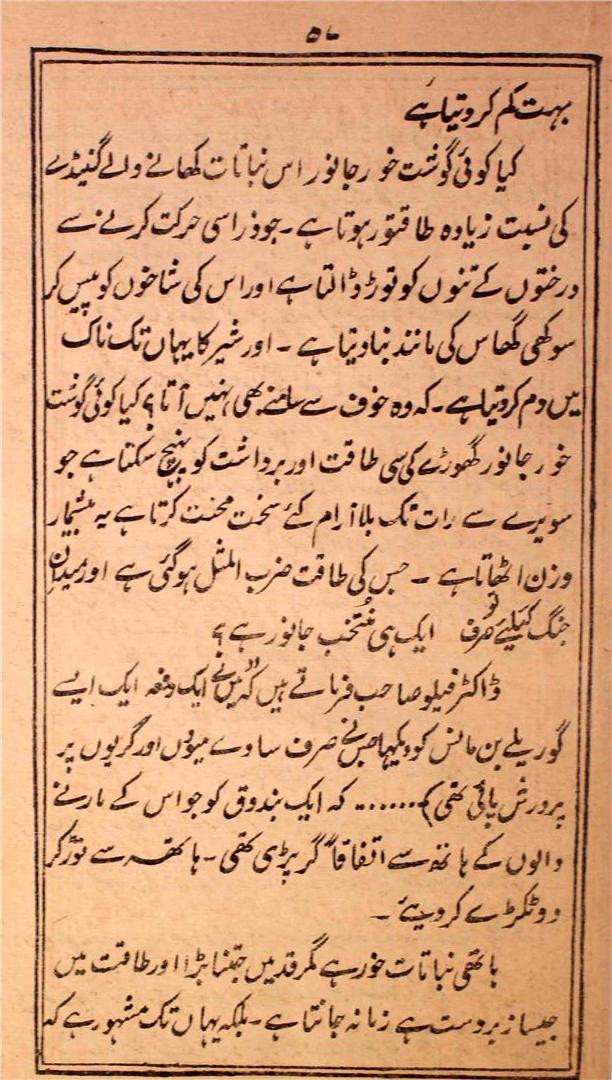 ۵۷
بہت کم کر دیتا ہے
کیا کوئی گوشت خور جانور اس نباتات کھانے والے گینڈے
کی نسبت زیادہ طاقتور ہوتا ہے۔ جو ذراسی حرکت کرنے سے
درختوں کے تنوں کو توڑ ڈالتا ہے اور اس کی شاخوں کو پیس کر
سوکھی گھاس کی مانند بنا دیتا ہے ۔ اور شیر کا یہاں تک ناک
میں دم کر دیتا ہے۔ کہ وہ خوف سے سامنے بھی نہیں آتا؟ کیا کوئی گوشت
خور جانور گھوڑے کی سی طاقت اور برداشت کو پہنچ سکتا ہے جو
سویرے سے رات تک بلا آرام کئے سخت محنت کرتا ہے یہ بیشمار
وزن اٹھاتا ہے ۔ جس کی طاقت ضرب المثل ہو گئی ہے اور میدان
جنگ کیلئے تو صرف ایک ہی منتخب جانور ہے؟
ڈاکٹر فیلو صاحب فرماتے ہیں کہ "میں نے ایک دفعہ ایک ایسے
گوریلے بن مانس کو دیکھا جس نے صرف ساوے میوں اور گریوں پر
پرورش پائی تھی) ...... کہ ایک بندوق کو جو اس کے مارنے
والوں کے ہاتھ سے اتفاقاً گر پڑی تھی ۔ ہاتھہ سے توڑ کر
دو ٹکڑے کر دیئے ۔
ہاتھی نباتات خور ہے مگر قد میں جتنا بڑا اور طاقت میں
جیسا زبردست ہے زمانہ جانتا ہے ۔ بلکہ یہاں تک مشہور ہے کہ